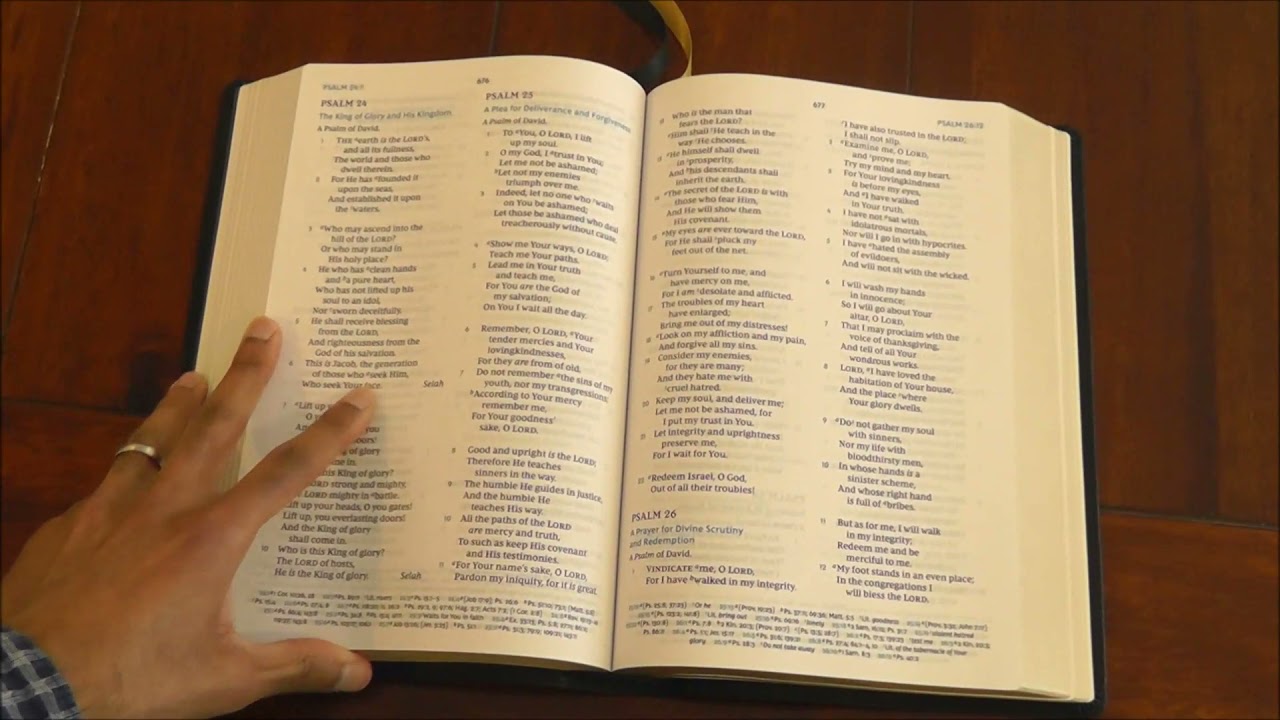 PSALM 24:1
676
PSALM 24
The King of Glory and His Kingdom
A Psalm of David.
1 THE aearth is the LORD's,
and all its fullness,
The world and those who
dwell therein.
2 For He has afounded it
upon the seas,
And established it upon
the bwaters.
3 aWho may ascend into the
hill of the LORD?
Or who may stand in
His holy place?
4 He who has aclean hands
and ba pure heart,
Who has not lifted up his
soul to an idol,
Nor csworn deceitfully.
5 He shall receive blessing
from the LORD,
And righteousness from the
God of his salvation.
6 This is Jacob, the generation
of those who aseek Him,
Who seek Your face. Selah
7 aLift up
King of glory?
LORD strong and mighty,
LORD mighty in abattle.
Lift up your heads, O you gates!
Lift up, you everlasting doors!
And the King of glory
shall come in.
10 Who is this King of glory?
The LORD of hosts,
He is the King of glory. Selah
PSALM 25
A Plea for Deliverance and Forgiveness
A Psalm of David.
1 TO aYou, O LORD, I lift
up my soul.
2 O my God, I atrust in You;
Let me not be ashamed;
bLet not my enemies
triumph over me.
3 Indeed, let no one who awaits
on You be ashamed;
Let those be ashamed who deal
treacherously without cause.
4 aShow me Your ways, O LORD;
Teach me Your paths.
5 Lead me in Your truth
and teach me,
For You are the God of
my salvation;
On You I wait all the day.
6 Remember, O LORD, aYour
tender mercies and Your
lovingkindnesses,
For they are from of old.
7 Do not remember athe sins of my
youth, nor my transgressions;
bAccording to Your mercy
remember me,
For Your goodness'
sake, O LORD.
8 Good and upright is the LORD;
Therefore He teaches
sinners in the way.
9 The humble He guides in justice,
And the humble He
teaches His way.
10 All the paths of the LORD
are mercy and truth,
To such as keep His covenant
and His testimonies.
11 aFor Your name's sake, O LORD,
Pardon my iniquity, for it is great.
677
PSALM 26:12
12 Who is the man that
fears the LORD?
aHim shall He teach in the
way He chooses.
13 aHe himself shall dwell
in prosperity,
And bhis descendants shall
inherit the earth.
14 aThe secret of the LORD is with
those who fear Him,
And He will show them
His covenant.
15 aMy eyes are ever toward the LORD,
For He shall pluck my
feet out of the net.
16 aTurn Yourself to me, and
have mercy on me,
For I am desolate and afflicted.
17 The troubles of my heart
have enlarged;
Bring me out of my distresses!
18 aLook on my affliction and my pain,
And forgive all my sins.
19 Consider my enemies,
for they are many;
And they hate me with
cruel hatred.
20 Keep my soul, and deliver me;
Let me not be ashamed, for
I put my trust in You.
21 Let integrity and uprightness
preserve me,
For I wait for You.
22 aRedeem Israel, O God,
Out of all their troubles!
PSALM 26
A Prayer for Divine Scrutiny
and Redemption
A Psalm of David.
1 VINDICATE ame, O LORD,
For I have bwalked in my integrity.
cI have also trusted in the LORD;
I shall not slip.
2 aExamine me, O LORD,
and prove me;
Try my mind and my heart.
3 For Your lovingkindness
is before my eyes,
And aI have walked
in Your truth.
4 I have not asat with
idolatrous mortals,
Nor will I go in with hypocrites.
5 I have ahated the assembly
of evildoers,
And will not sit with the wicked.
6 I will wash my hands
in innocence;
So I will go about Your
altar, O LORD,
7 That I may proclaim with the
voice of thanksgiving,
And tell of all Your
wondrous works.
8 LORD, aI have loved the
habitation of Your house,
And the place where
Your glory dwells.
9 aDo not gather my soul
with sinners,
Nor my life with
bloodthirsty men,
10 In whose hands is a
sinister scheme,
And whose right hand
is full of abribes.
11 But as for me, I will walk
in my integrity;
Redeem me and be
merciful to me.
12 aMy foot stands in an even place;
In the congregations I
will bless the LORD.